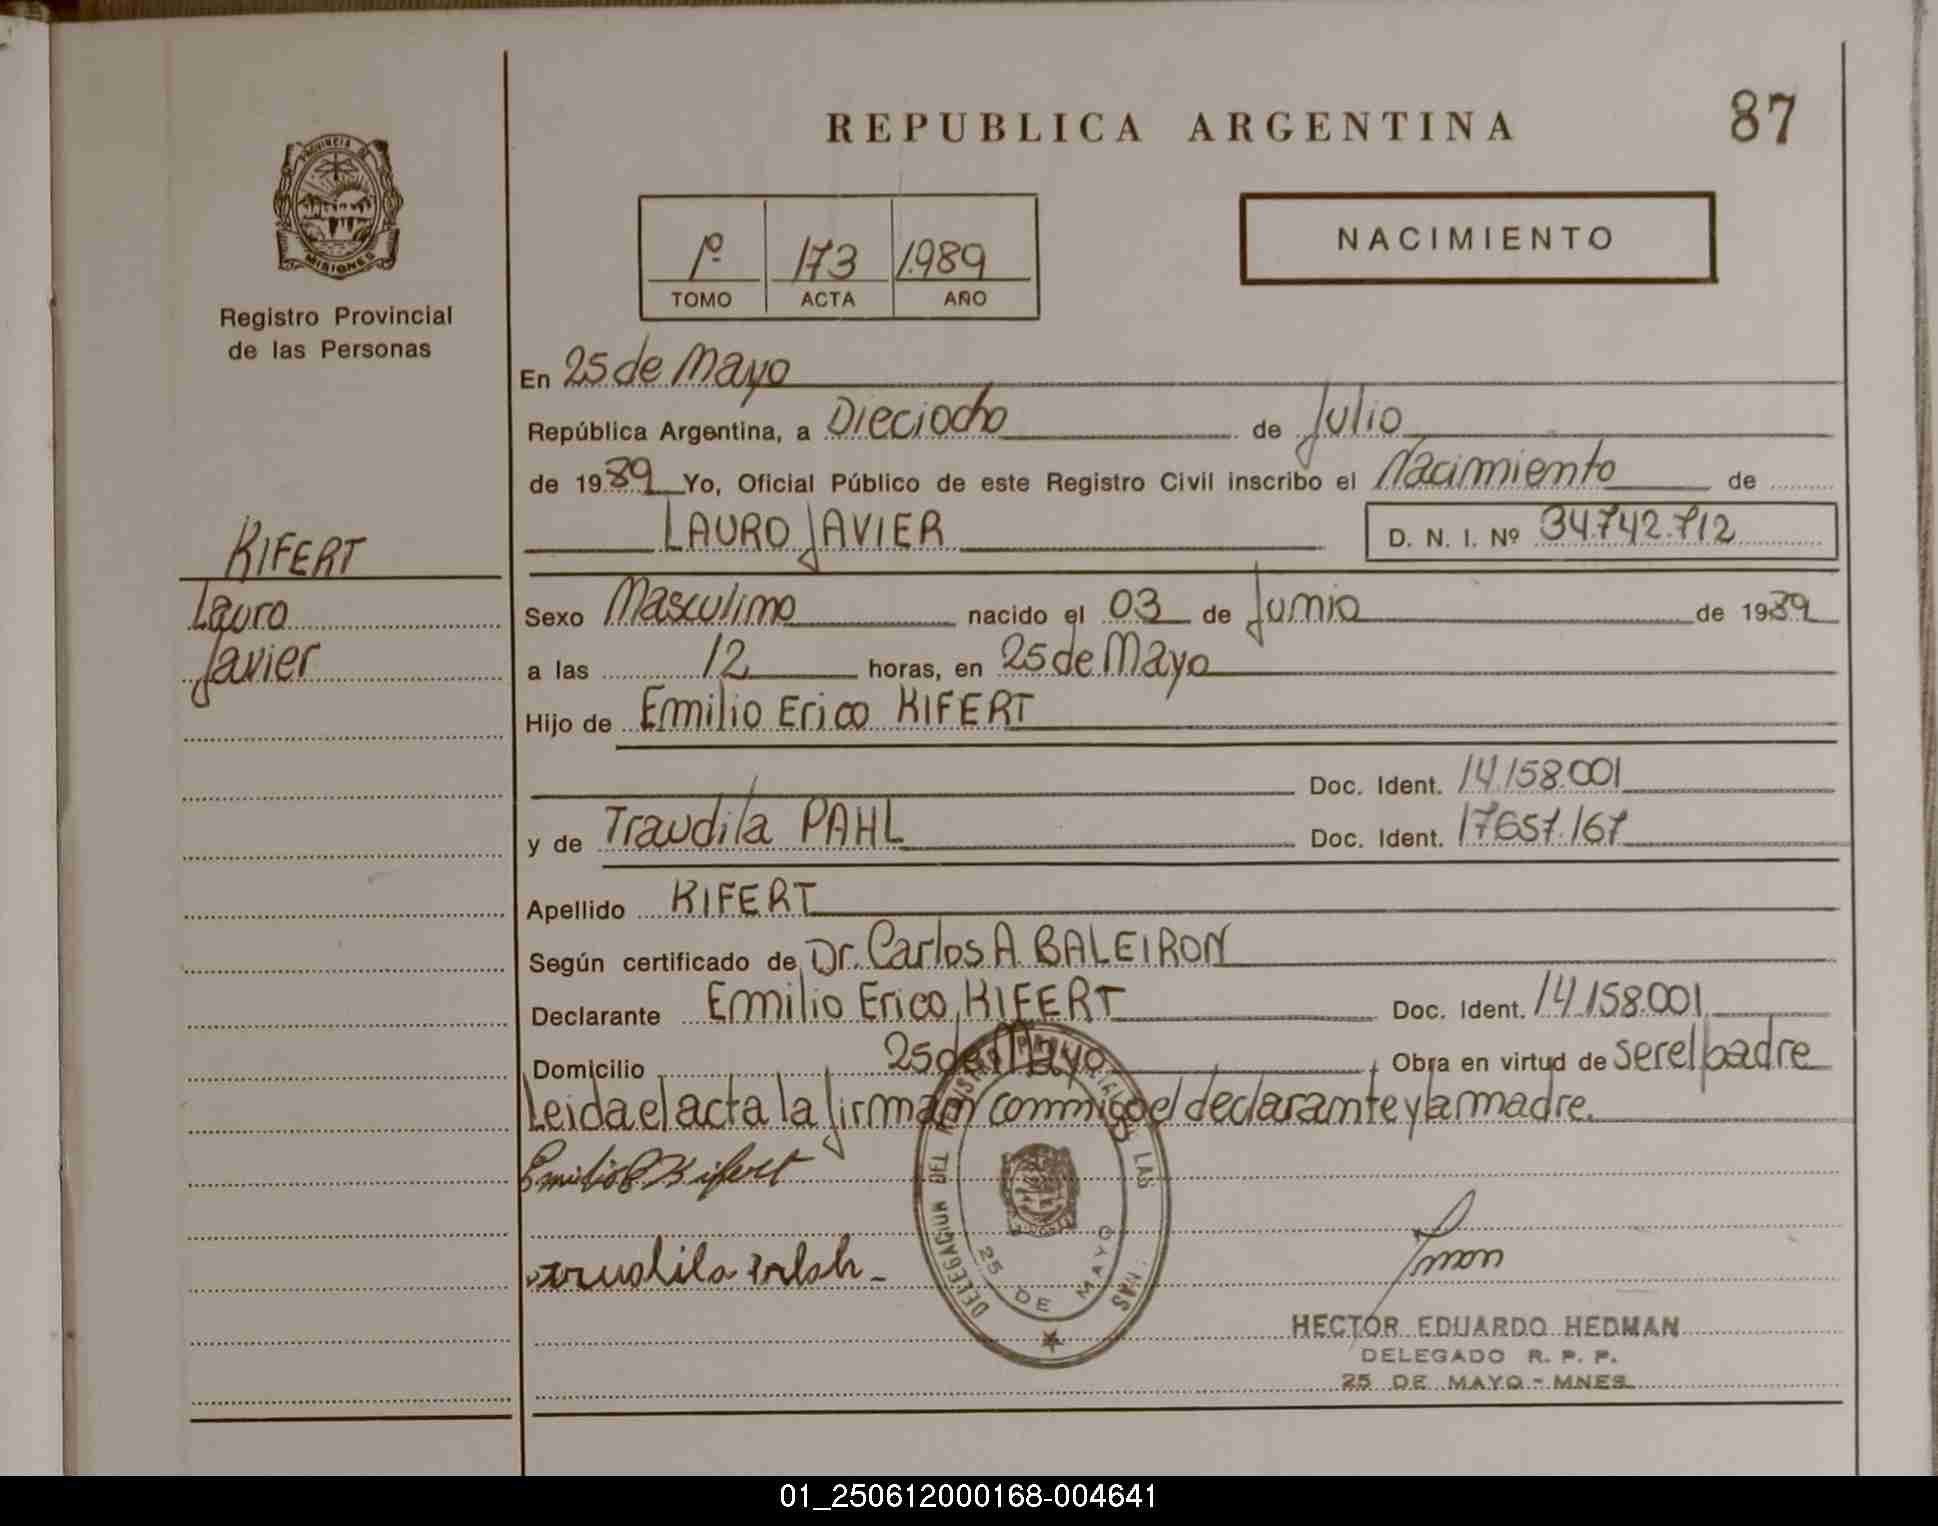 REPUBLICA ARGENTINA
87
PROVINCIA DE
MISIONES
Registro Provincial
de las Personas
1º 173 1.989
TOMO ACTA AÑO
NACIMIENTO
En 25 de Mayo
República Argentina, a Dieciocho de Julio
de 1989 Yo, Oficial Público de este Registro Civil inscribo el Nacimiento de
LAURO JAVIER
D. N. I. Nº 34.742.712
KIFERT
Lauro
Javier
Sexo Masculino nacido el 03 de Junio de 1989
a las 12 horas, en 25 de Mayo
Hijo de Emilio Erico KIFERT
Doc. Ident. 14.158.001
y de Traudila PAHL Doc. Ident. 17.657.167
Apellido KIFERT
Según certificado de Dr. Carlos A. BALEIRON
Declarante Emilio Erico KIFERT Doc. Ident. 14.158.001
Domicilio 25 de Mayo, Obra en virtud de ser el padre
Leida el acta la firman conmigo el declarante y la madre.
Emilio E Kifert
DELEGACION DEL LAS
25 DE MAYO
HECTOR EDUARDO HEDMAN
DELEGADO R. P. P.
25 DE MAYO - MNES.
01_250612000168-004641